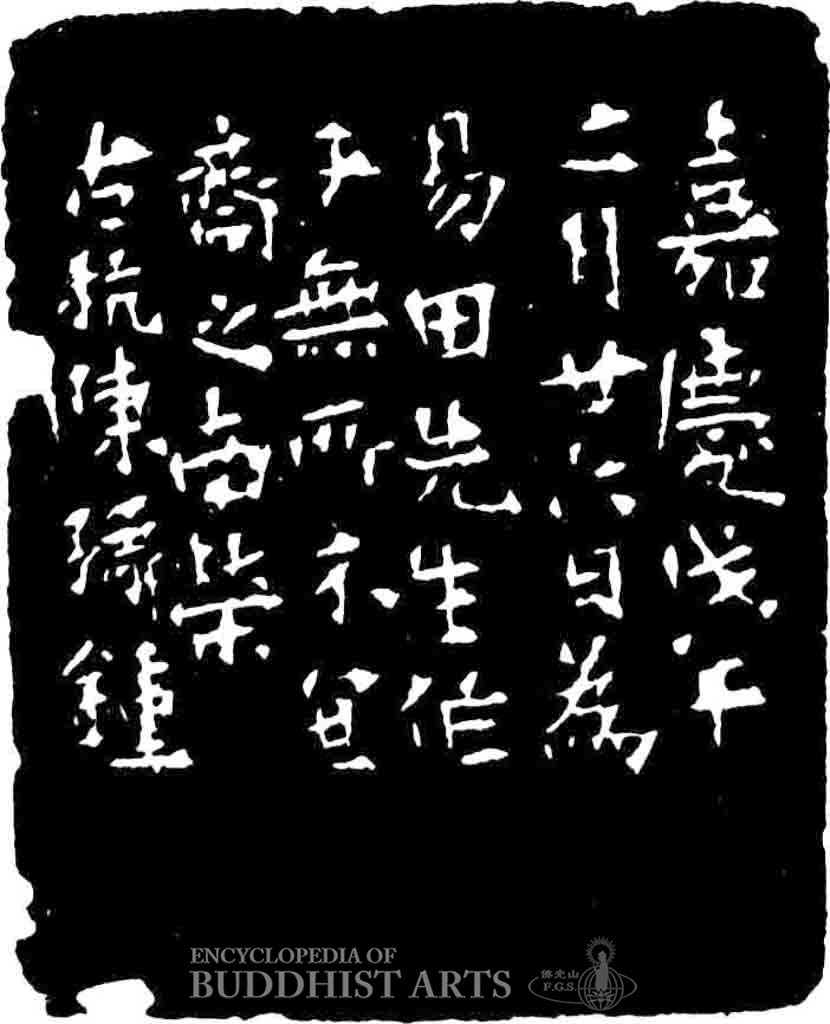 嘉慶戊午
二月廿六日為
易田先生作
于無所不宜
齋之南榮
古杭陳豫鍾
ENCYCLOPEDIA OF
BUDDHIST ARTS
佛光山
F.G.S.